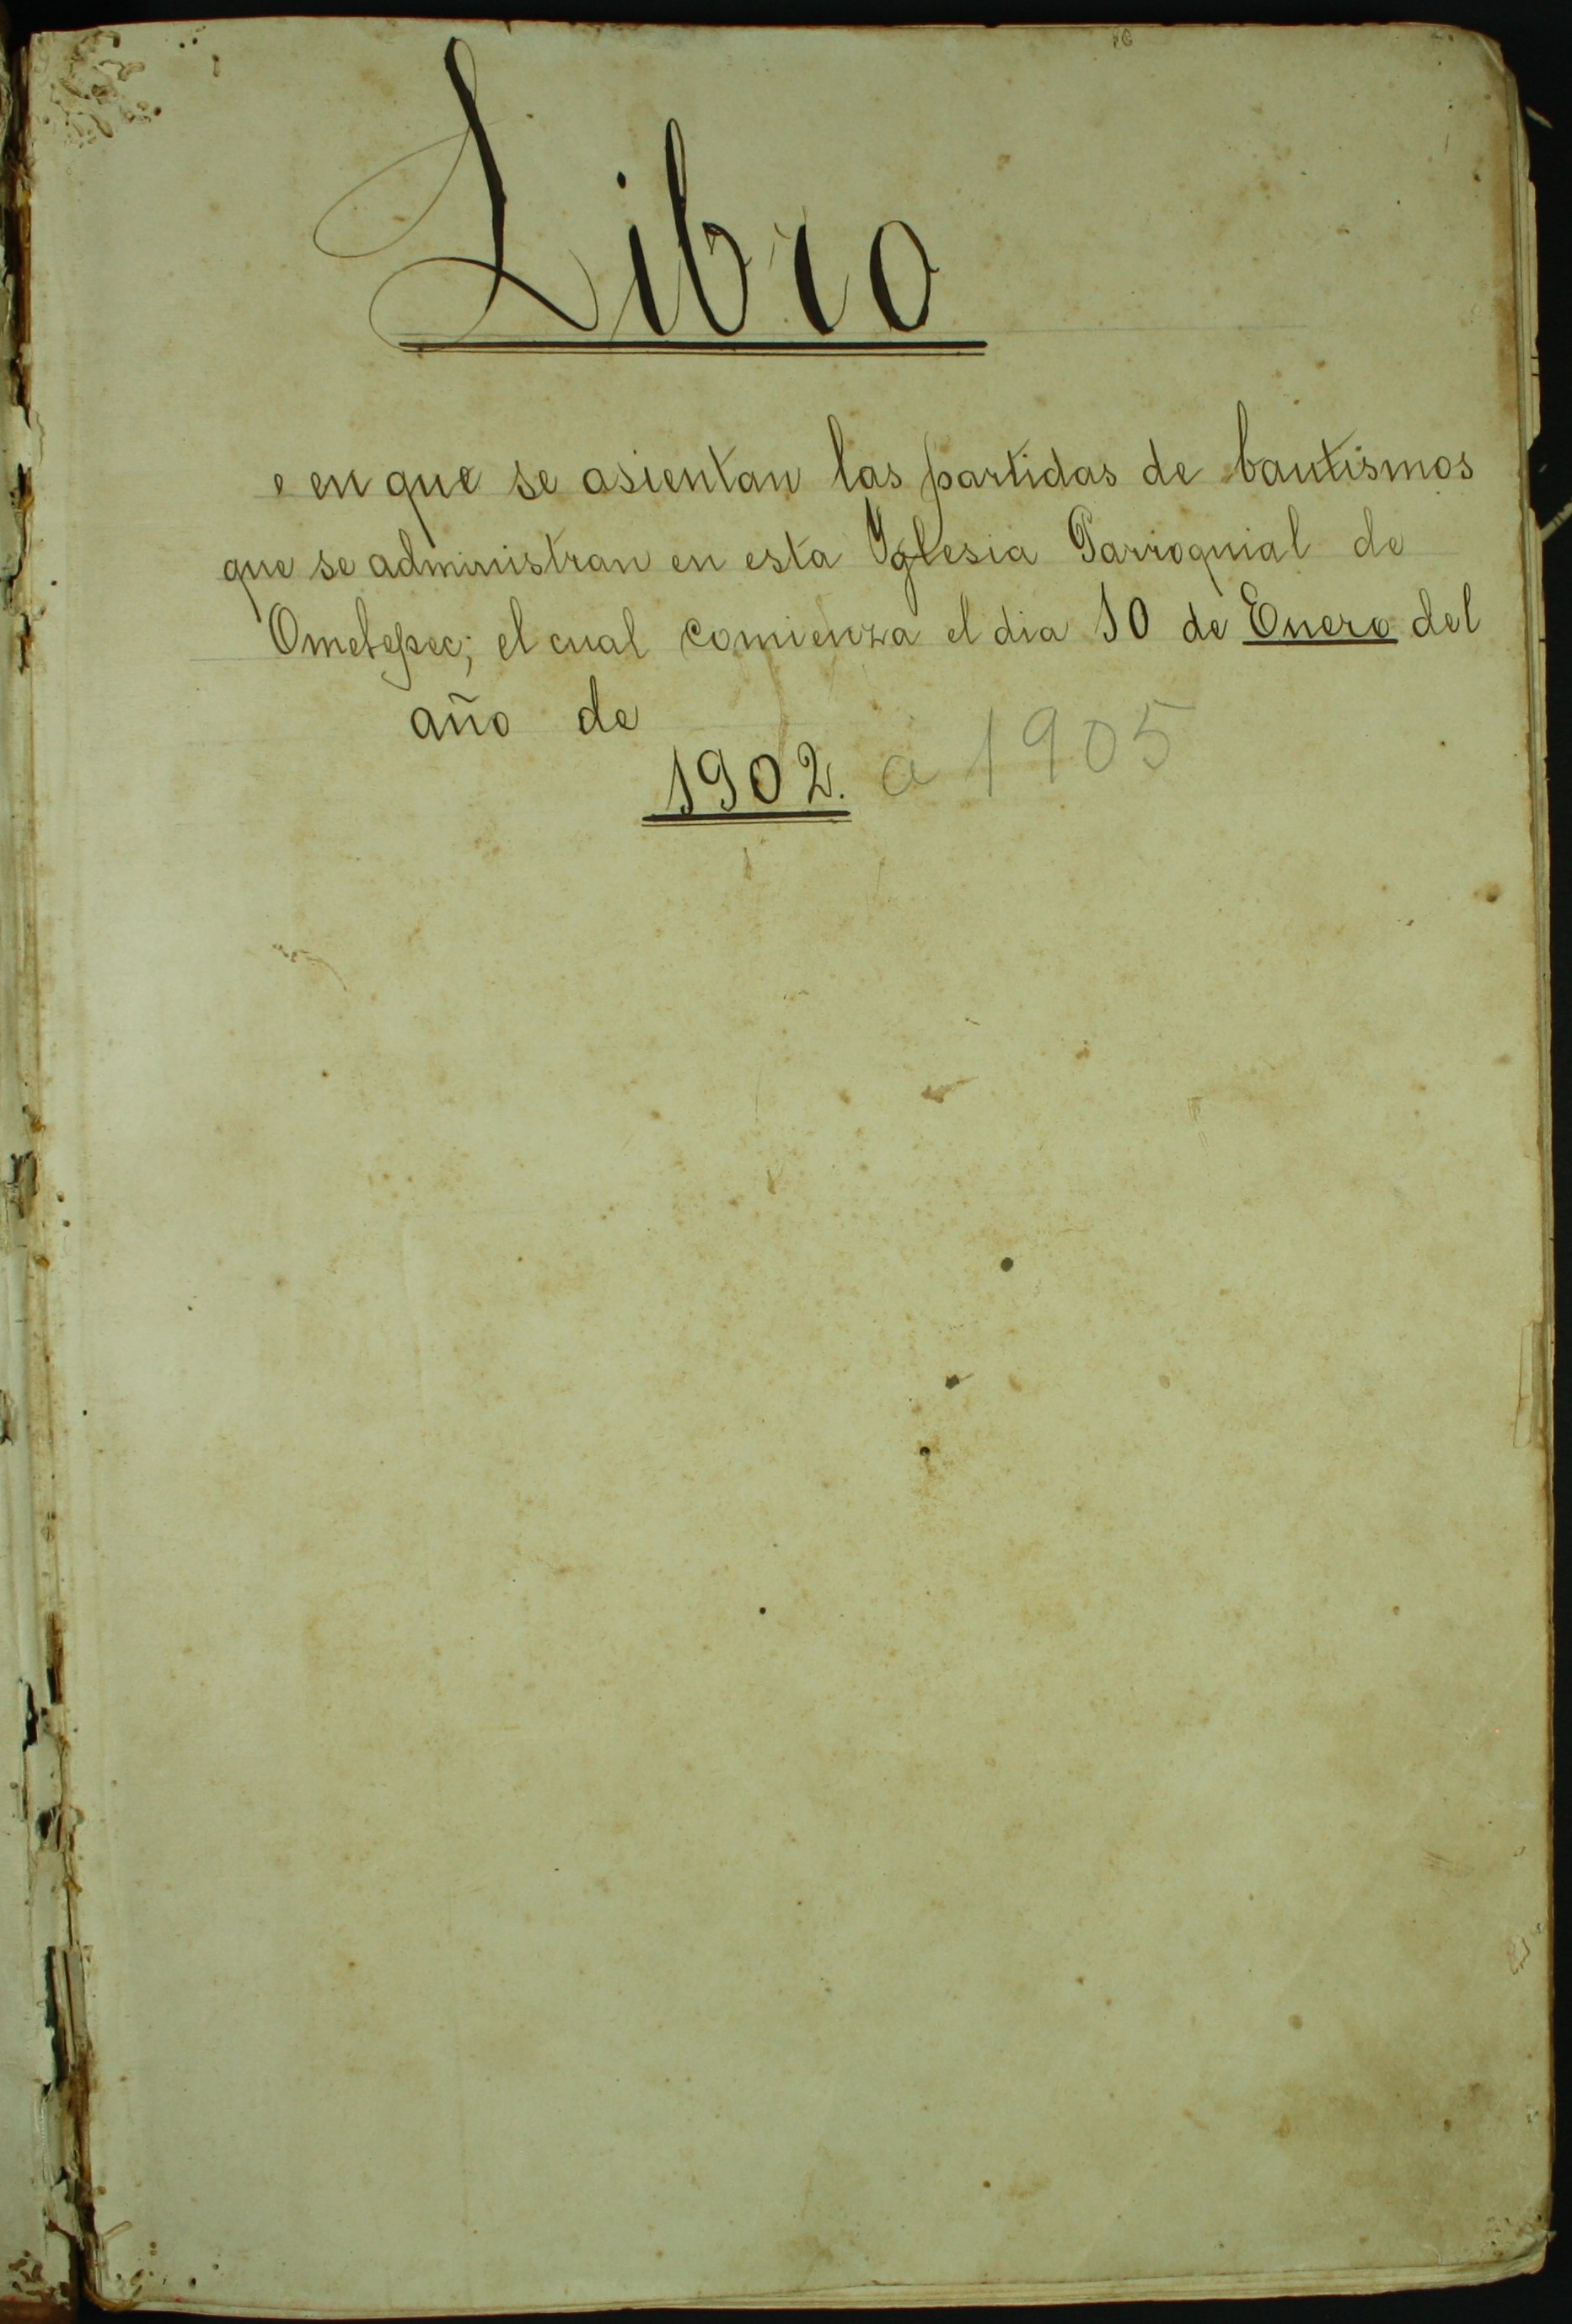 Libro
en que se asientan las partidas de bautismos
que se administran en esta Yglesia Parroquial de
Ometepec; el cual comienza el dia 10 de Enero del
año de
1902. a 1905